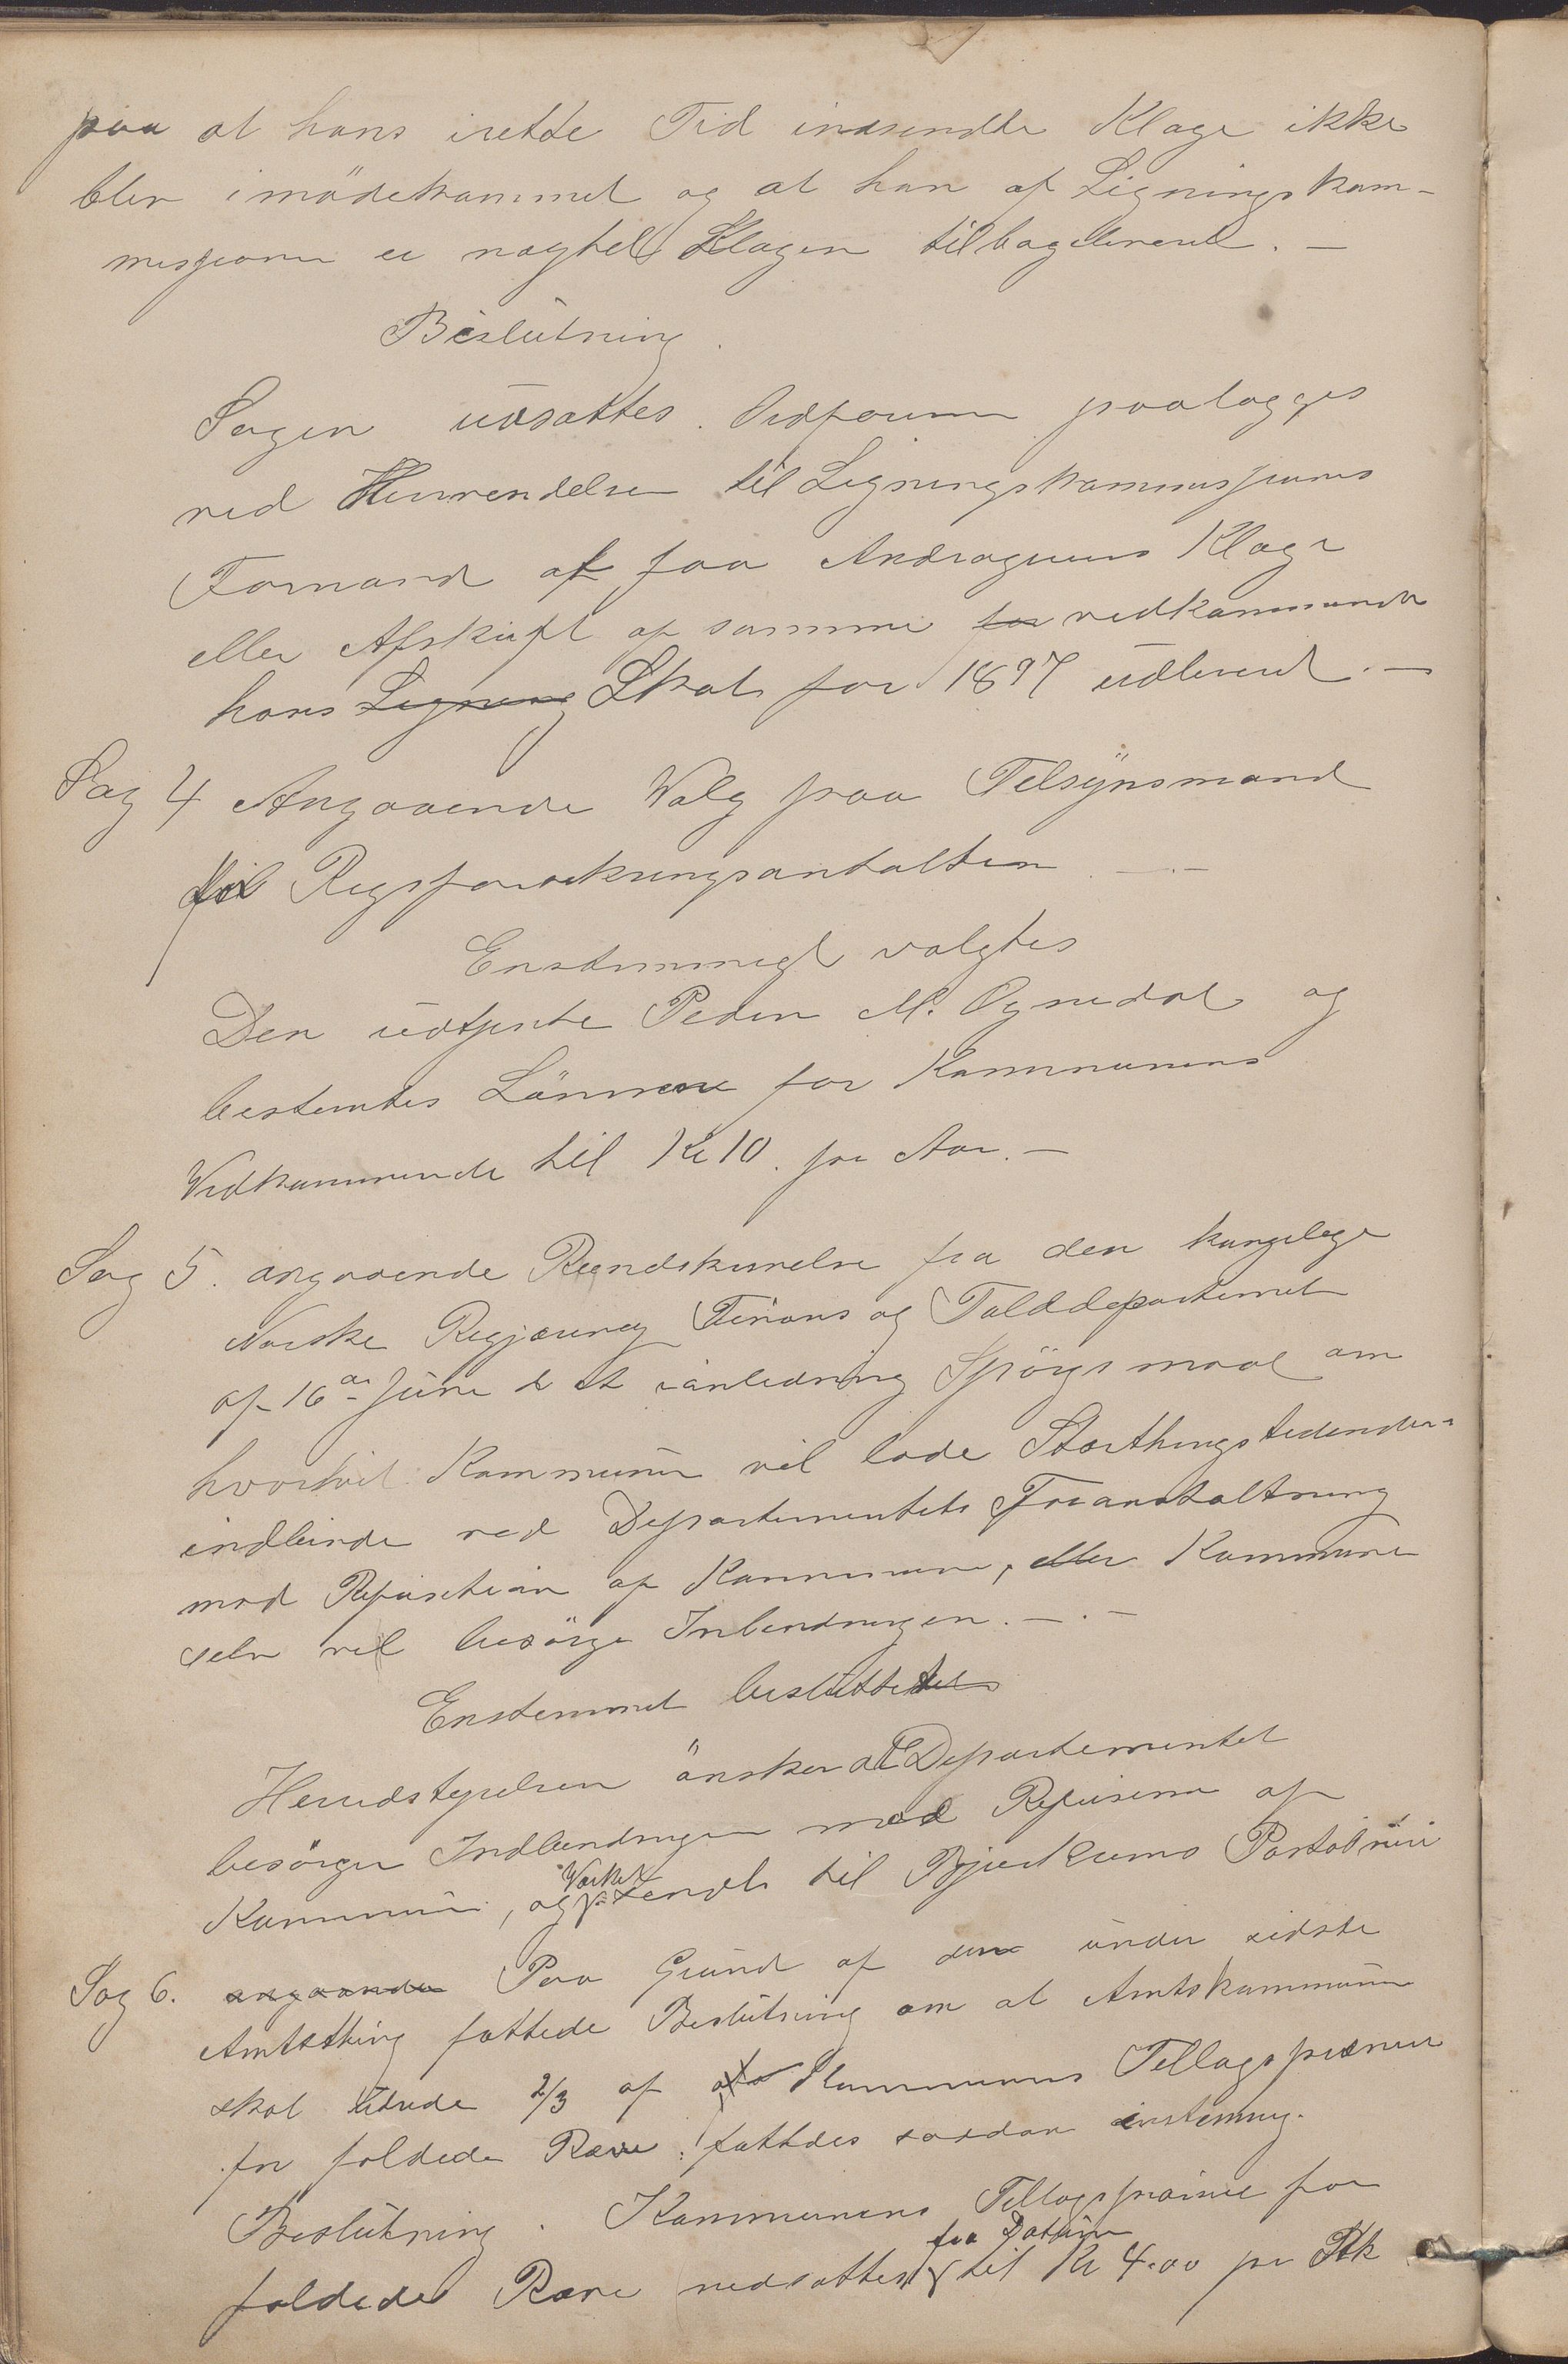 paa at hans irette Tid indsendte Klage ikke
blev imödekommet og at han af Ligningskom-
missjonen er nægtet Klagen tilbageleveret. —
Beslutning.
Sagen udsattes. Ordföreren paalægges
ved Henvendelse til Ligningskommissjonens
Formand at faa Andragerens Klage
eller Afskrift af samme for vedkommende
hans Ligning Skat for 1897 udleveret. —
Sag 4 Angaaende Valg paa Tilsynsmand
for Rigsforsikringsanstalten —.—
Enstemmigt valgtes
Den udtjente Peder M. Ognedal og
bestemtes Lönnen for Kommunens
Vedkommende til Kr 10. pr Aar. —
Sag 5. angaaende Rundskrivelse fra den kongelige
Norske Regjering Finans og Tolddepartement
af 16de Juni d A i anledning Spörgsmaal om
hvorvidt Kommunen vil lade Storthingstidender
indbinde ved Departementets Foranstaltning
mod Refusion af Kommunen, eller Kommunen
selv vil besörge Inbindingen. —.—
Enstemmet besluttedes
Herredstyrelsen önsker at Departementet
besörger Indbindingen mod Refusion af
Kommunen, og Værket sendt til Bjerkreims Postaabneri
Sag 6. angaaende Paa Grund af den under sidste
Amtsthing fattede Beslutning om at Amtskommunen
skal utrede 2/3 af Kommunens Tillægspræmier
for fældede Ræve: fattedes saadan enstemmig.
Beslutning. Kommunens Tillægspræmie for
fældede Ræve nedsattes fra Datum til Kr 4.00 pr Stk